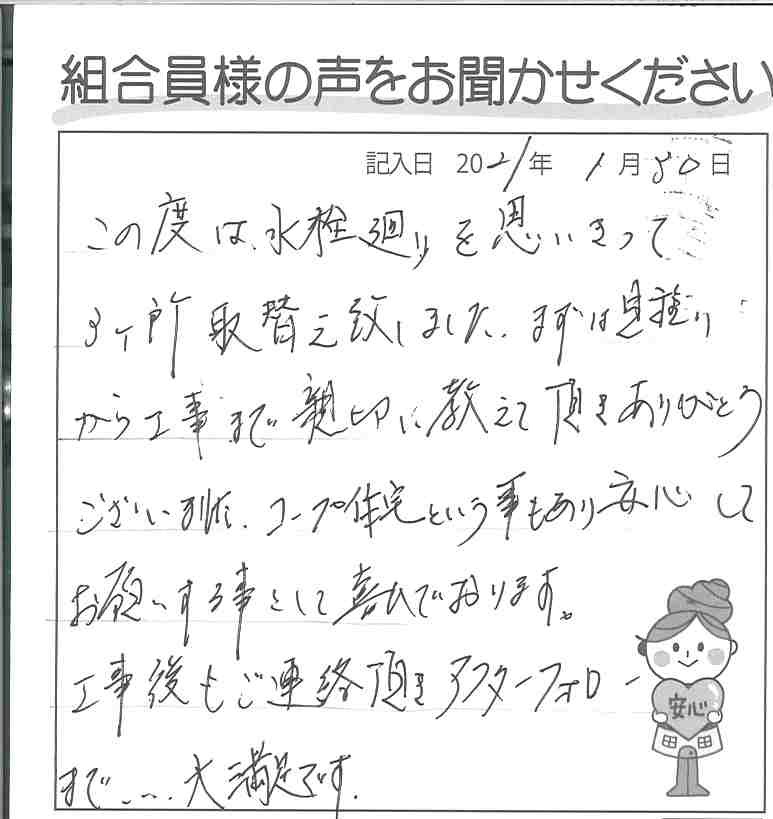 組合員様の声をお聞かせください
記入日 2021年 1月30日
この度は、水栓廻りを思いきって
3ヶ所取替え致しました。まずは見積り
から工事まで親切に教えて頂きありがとう
ございました。コープ住宅という事もあり安心して
お願いする事として喜んでおります。
工事後もご連絡頂きアフターフォロー
まで…大満足です。
安心